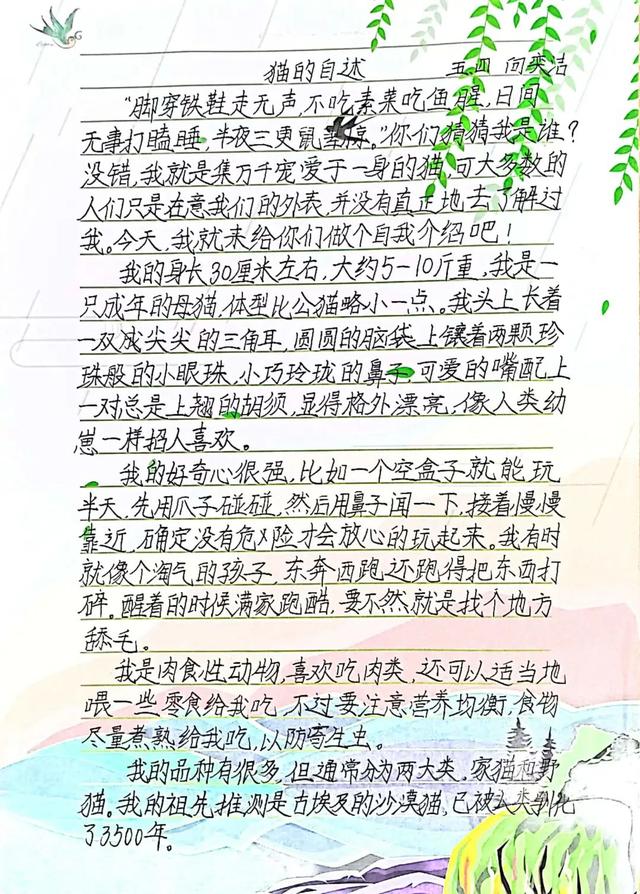 猫的自述 五.四 向奕洁
“脚穿铁鞋走无声,不吃素菜吃鱼腥,日间
无事打瞌睡,半夜三更鼠 惊。”你们猜猜我是谁?
没错,我就是集万千宠爱于一身的猫,可大多数的
人们只是在意我们的外表,并没有真正地去了解过
我。今天,我就来给你们做个自我介绍吧!
我的身长30厘米左右,大约5-10斤重,我是一
只成年的母猫,体型比公猫略小一点。我头上长着
一双尖尖的三角耳,圆圆的脑袋上镶着两颗珍
珠般的小眼珠,小巧玲珑的鼻子,可爱的嘴配上
一对总是上翘的胡须,显得格外漂亮,像人类幼
崽一样招人喜欢。
我的好奇心很强,比如一个空盒子就能玩
半天,先用爪子碰碰,然后用鼻子闻一下,接着慢慢
靠近,确定没有危险才会放心的玩起来。我有时
就像个淘气的孩子,东奔西跑,还跑得把东西打
碎。醒着的时候满家跑酷,要不然就是找个地方
舔毛。
我是肉食性动物,喜欢吃肉类,还可以适当地
喂一些零食给我吃,不过要注意营养均衡,食物
尽量煮熟给我吃,以防寄生虫。
我的品种有很多,但通常分为两大类,家猫和野
猫。我的祖先推测是古埃及的沙漠猫,已被人类驯化
了3500年。